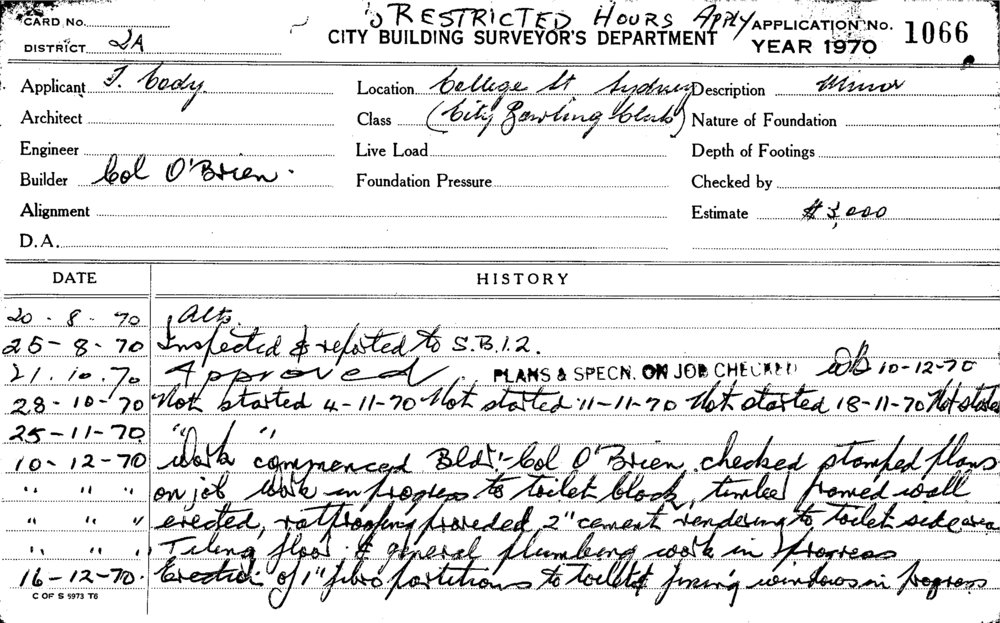 RESTRICTED HOURS APPLY
CARD No.
CITY BUILDING SURVEYOR'S DEPARTMENT
APPLICATION No. 1066
DISTRICT 2A
YEAR 1970
Applicant J. Cody
Location College St Sydney
Description Minor
Architect
Class (City Bowling Club)
Nature of Foundation
Engineer
Live Load
Depth of Footings
Builder Col O'Brien.
Foundation Pressure
Checked by
Alignment
Estimate $3,000
D.A.
DATE HISTORY
20-8-70 Alts.
25-8-70 Inspected & reported to S.B.I.2.
21.10.70 Approved. PLANS & SPECN. ON JOB CHECKED 10-12-70
28-10-70 Not started 4-11-70 Not started 11-11-70 Not started 18-11-70 Not started
25-11-70 " "
10-12-70 Work commenced Bldr:- Col O'Brien, checked stamped plans
" " " on job work in progress to toilet block, timber framed wall
" " " erected, ratproofing provided, 2" cement rendering to toilet side area
" " " Tiling floor & general plumbing work in progress
16-12-70. Erection of 1" fibro partitions to toilets fixing windows in progress
C OF S 5973 T6